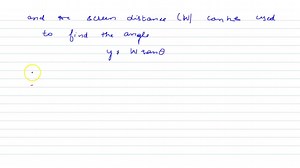 and the screen distance (W) can be used
to find the angle
y = W tanθ